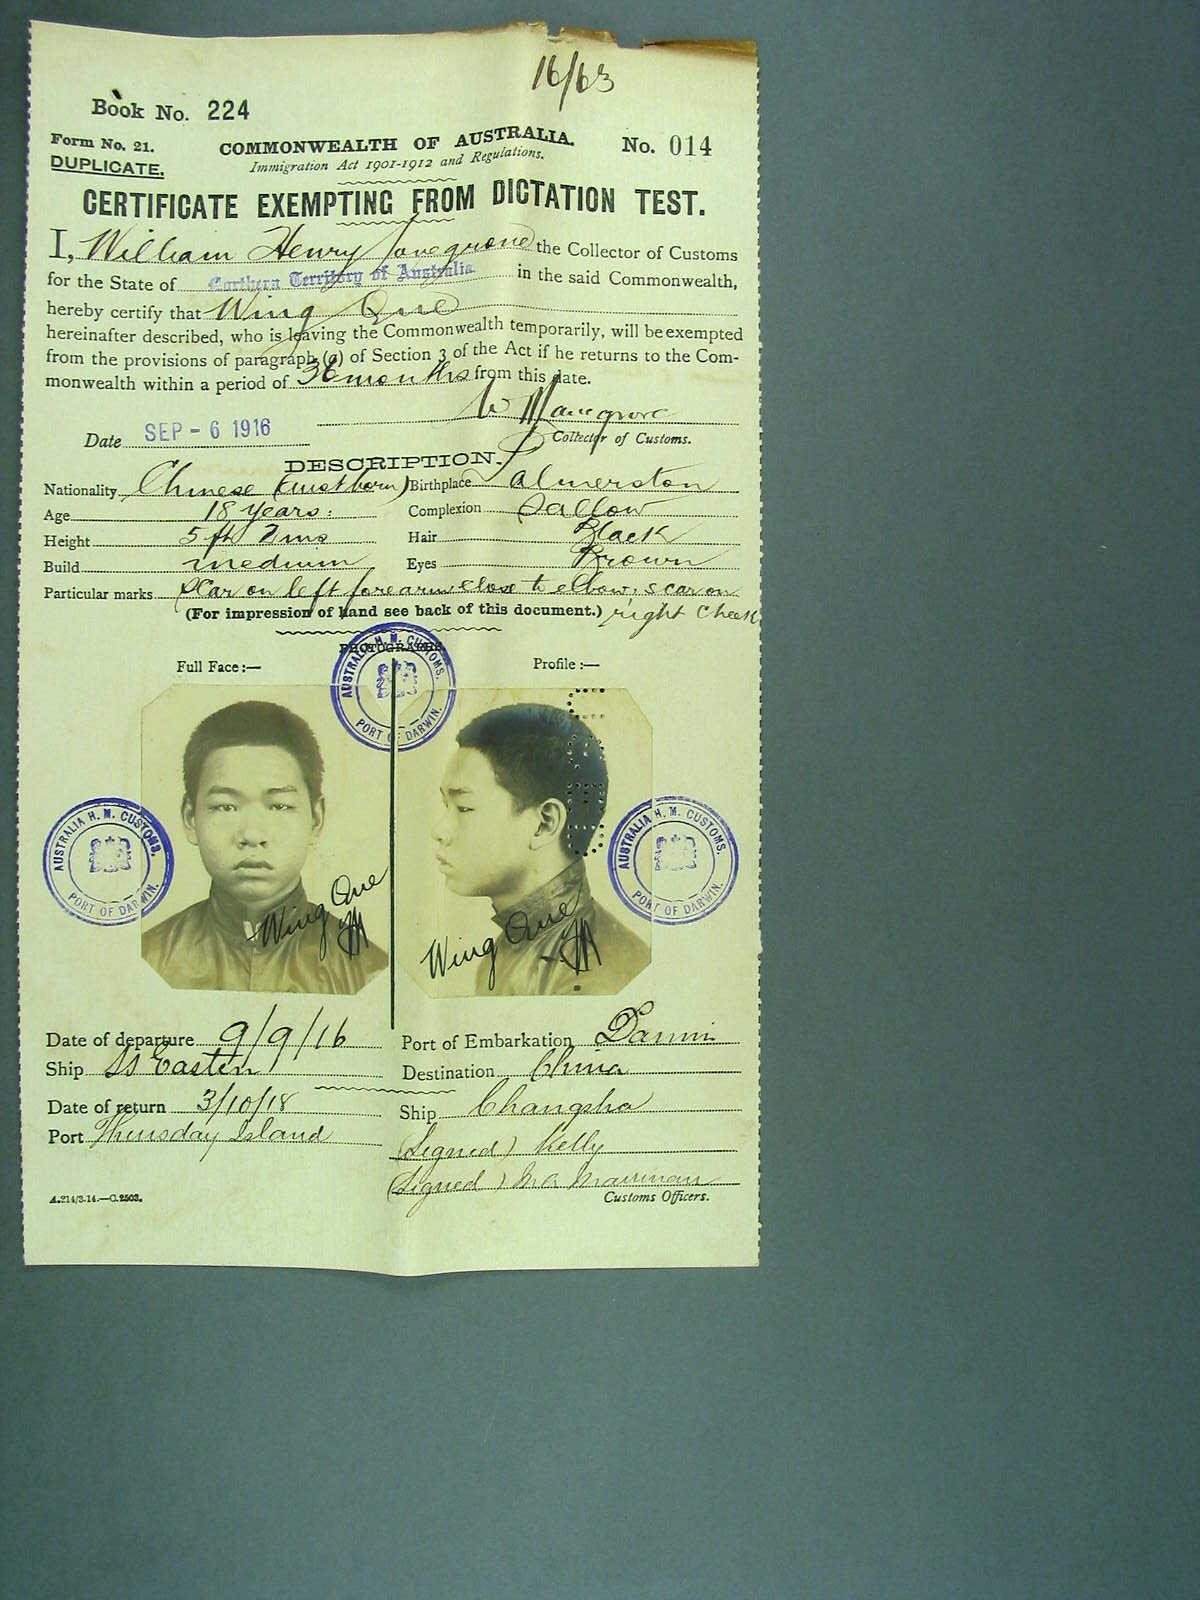 16/63
Book No. 224
Form No. 21.
DUPLICATE.
COMMONWEALTH OF AUSTRALIA.
No. 014
Immigration Act 1901-1912 and Regulations.
CERTIFICATE EXEMPTING FROM DICTATION TEST.
I, William Henry the Collector of Customs
for the State of Northern Territory of Australia in the said Commonwealth,
hereby certify that Wing Que
hereinafter described, who is leaving the Commonwealth temporarily, will be exempted
from the provisions of paragraph (a) of Section 3 of the Act if he returns to the Com-
monwealth within a period of 36 months from this date.
Date SEP - 6 1916
Collector of Customs.
DESCRIPTION.
Nationality Chinese (Aust born) Birthplace Palmerston
Age 18 years: Complexion Sallow
Height 5 ft 2 ins Hair Black
Build medium Eyes Brown
Particular marks Scar on left forearm close to elbow, scar on
(For impression of hand see back of this document.) right cheek
PHOTOGRAPHS.
Full Face :— Profile :—
AUSTRALIA H. M. CUSTOMS. PORT OF DARWIN.
AUSTRALIA H. M. CUSTOMS. PORT OF DARWIN.
AUSTRALIA H. M. CUSTOMS. PORT OF DARWIN.
Wing Que
Wing Que
Date of departure 9/9/16 Port of Embarkation Darwin
Ship SS Eastern Destination China
Date of return 3/10/18 Ship Changsha
Port Thursday Island (Signed) Kelly
(Signed)
A.214/3.14.—C.2503. Customs Officers.